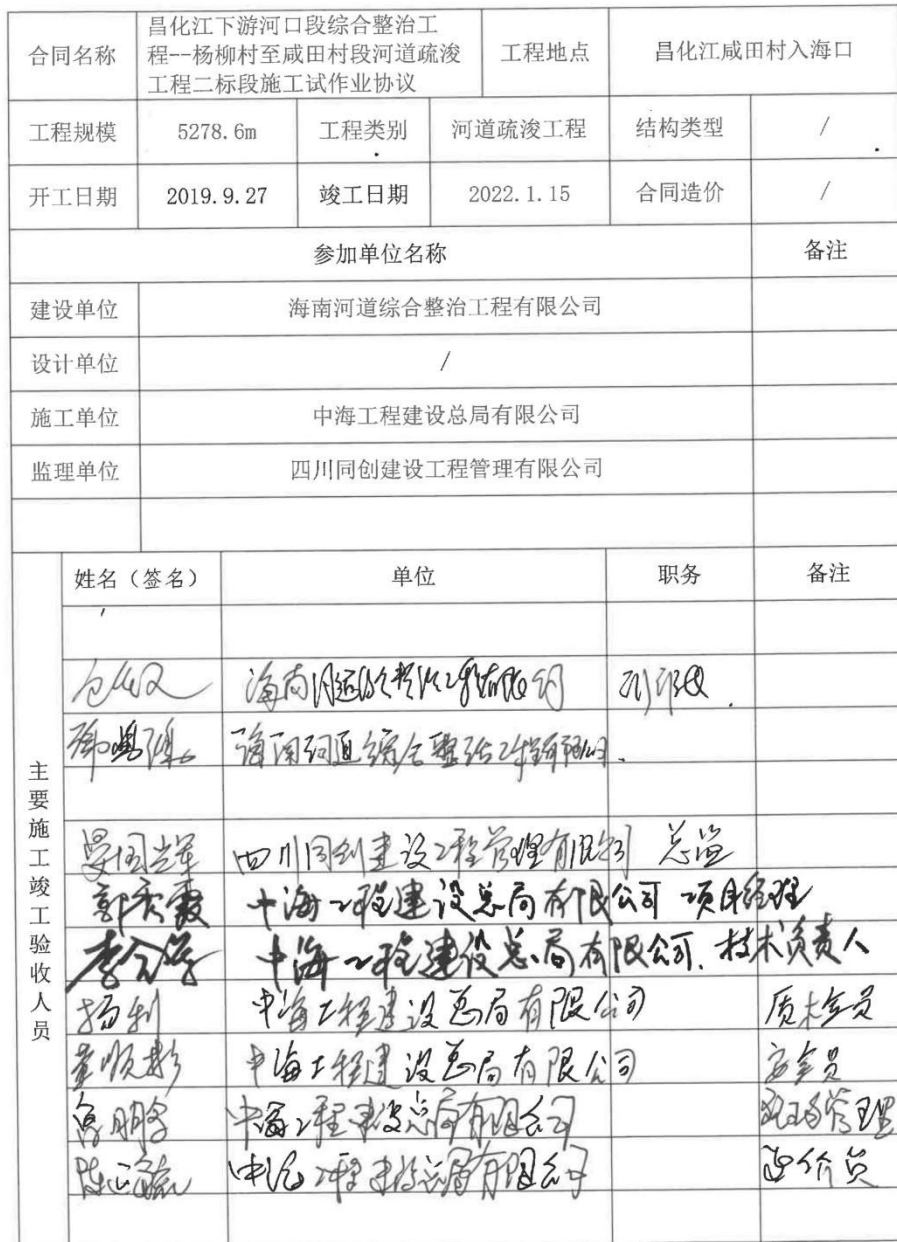 合同名称 昌化江下游河口段综合整治工 工程地点 昌化江咸田村入海口
程--杨柳村至咸田村段河道疏浚
工程二标段施工试作业协议
工程规模 5278.6m 工程类别 河道疏浚工程 结构类型 /
开工日期 2019.9.27 竣工日期 2022.1.15 合同造价 /
参加单位名称 备注
建设单位 海南河道综合整治工程有限公司
设计单位 /
施工单位 中海工程建设总局有限公司
监理单位 四川同创建设工程管理有限公司
主要施工竣工验收人员
姓名（签名） 单位 职务 备注
海南河道综合整治工程有限公司
海南河道综合整治工程有限公司
四川同创建设工程管理有限公司 总监
郭秀霞 中海工程建设总局有限公司 项目经理
中海工程建设总局有限公司 技术负责人
杨利 中海工程建设总局有限公司 质检员
董顺彬 中海工程建设总局有限公司 安全员
中海工程建设总局有限公司 现场管理
中海工程建设总局有限公司 造价员